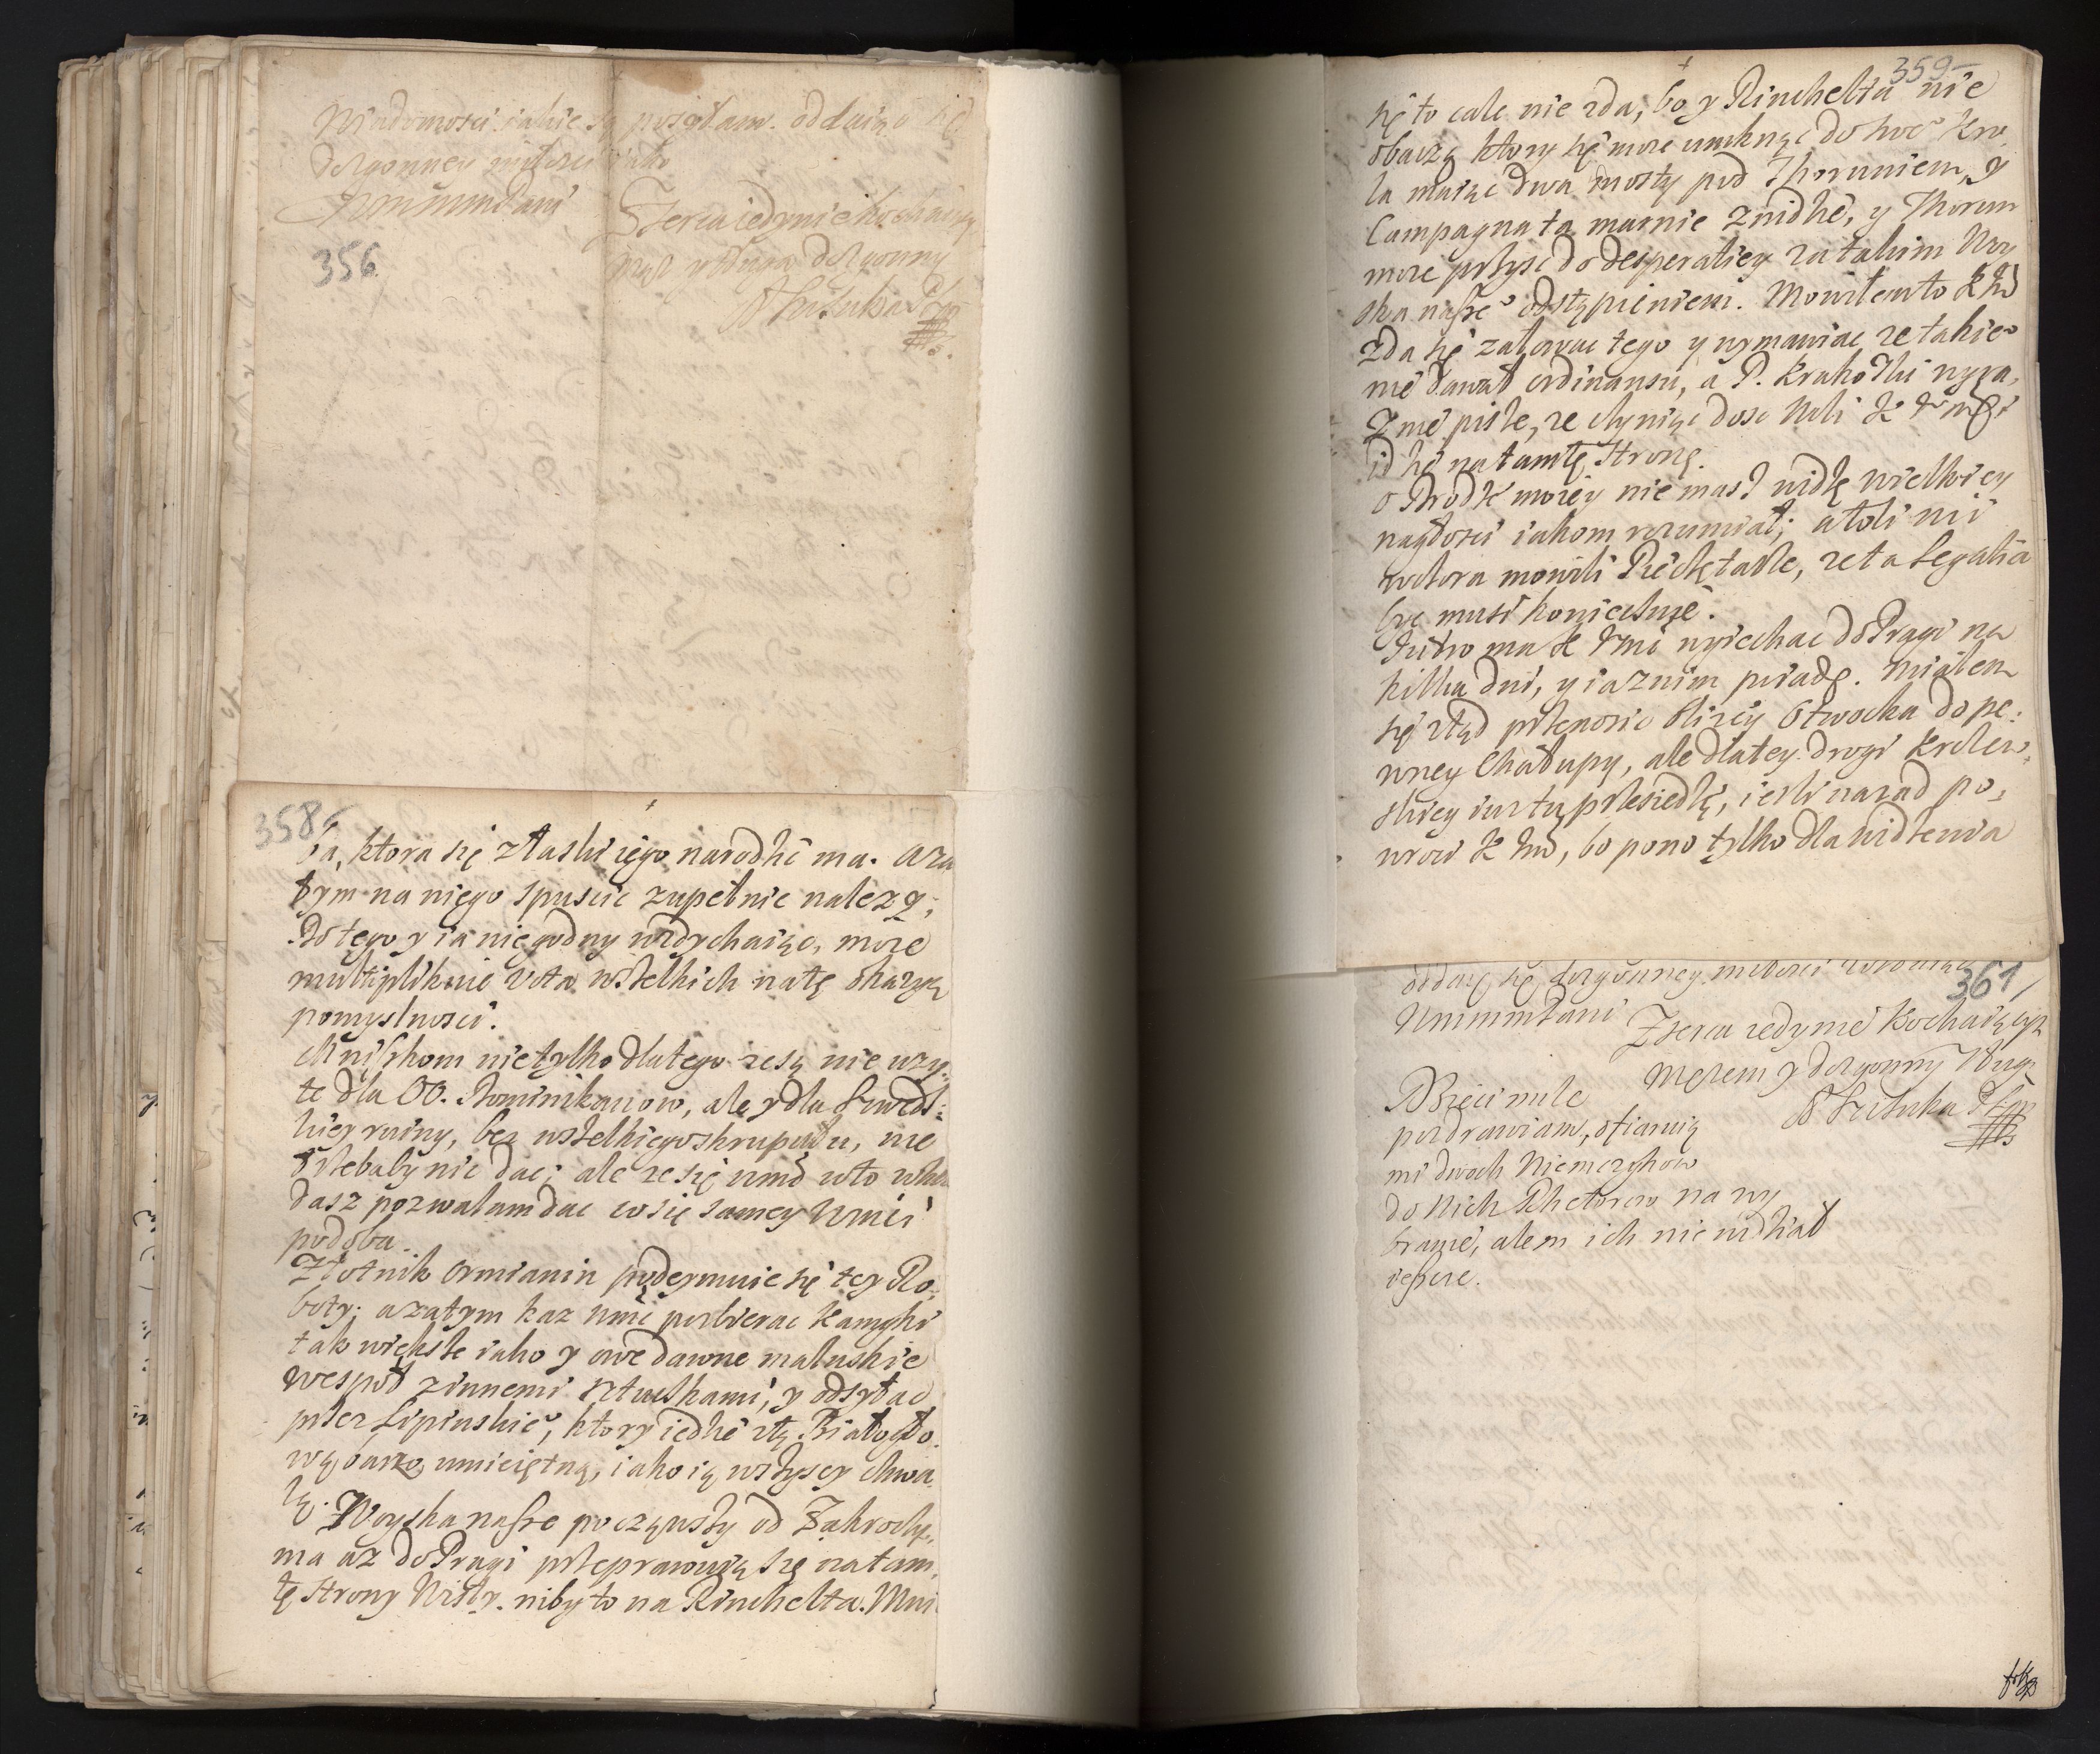 Wiadomości iakie są posyłam. oddaiąc się
dozgonney miłości iako
Ummm Pani
Z serca iedynie kochaiący
mąż y sługa dozgonny
S Szczuka
356
358
ba, ktora się z łaski iego narodzić ma. a za
tym na niego spuścic zupełnie nalezy;
Do tego y ia niegodny wzdychaiąc, moze
multiplikuie vota wszelkich na tę okazyą
pomyslnosci.
Mniszkom nie tylko dlatego ze są nie uzy:
te dla OO. Dominikanow, ale y dla szwedz:
kiey ruiny, bez wszelkiego skrupułu, nie
trzebaby nic dac; ale ze się wmd w to
dasz pozwalam dac co się samey Wmci
podoba.
Złotnik Ormianin podeymuie się tey Ro:
boty; a zatym kaz wmć pozbierac kamyki
tak większe iako y owe dawne maluskie
wespoł z innemi sztuczkami, y odsyłac
przez Lipinskieo, ktory iedzie z tą Białogło:
wą barzo umieiętną, iako ią wszyscy chwa
lą. Woyska nasze począwszy od Zakroczy:
ma az do Pragi przeprawuią się na tam:
tę strony Wisły. niby to na Rinchelta. Mni
359
się to cale nie zda, bo y Rinchelta nie
obaczą ktory się moze umknąc do sweo Kro
la maiąc dwa mosty pod Thoruniem, y
Campagna ta marnie znidzie, y Thorun
moze przysc do desperatiey za takim Woy
ska naszeo odstąpieniem. Mowiłem to
zda się załowac tego y wymawiac ze takieo
nie dawał ordinansu, a P. Krakowski wyra,
znie pisze, ze czyniąc dosc woli
idzie na tamtę stronę.
o drodze moiey nie masz widzę wielkiey
nagłosci iakom rozumiał; atoli mi
wczora mowili Pieczętarze, ze ta Legatia
byc musi koniecznie.
Jutro ma wyiechac do Pragi na
kilka dni, y ia z nim poiadę. Miałem
się ztąd przenosic blizey Otwocka do pe:
wney Chałupy, ale dla tey drogi krolew:
skiey iuz tu przesiedzę, iezli nazad po:
wroci, bo pono tylko dla widzenia
361
oddaię się dozgonney miłosci
Ummm Pani
Z serca iedynie kochaiącym
męzem y dozgonny sługa
S Szczuka
Dzieci mile
pozdrawiam, ofiaruią
mi dwoch Niemczykow
do nich Rhetorow na wy
branie, alem ich nie widział
ieszcze.